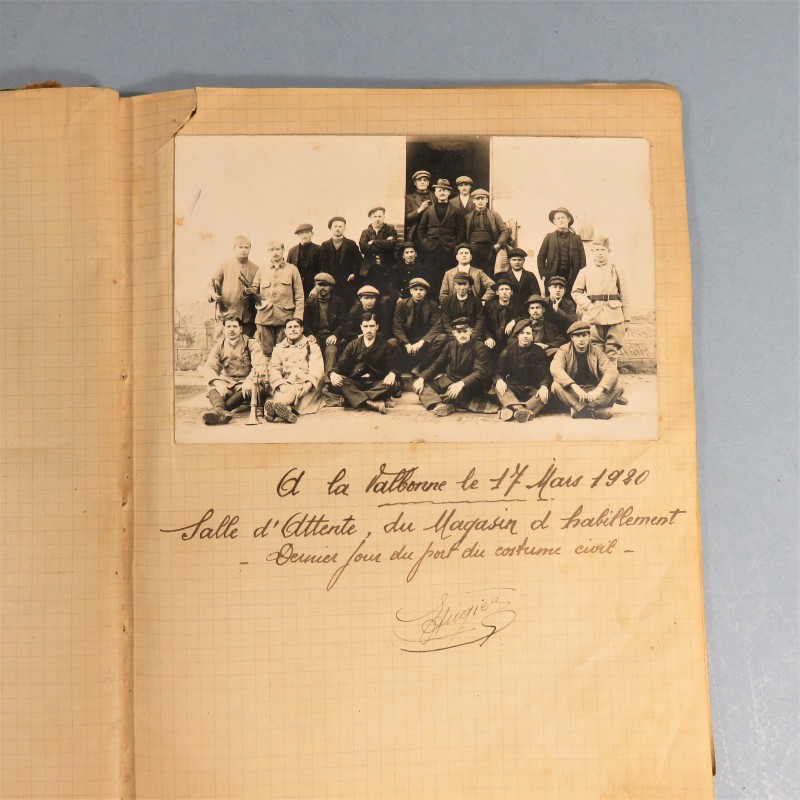 A la Valbonne le 17 Mars 1920
Salle d'Attente, du Magasin d habillement
- Dernier jour du port du costume civil -